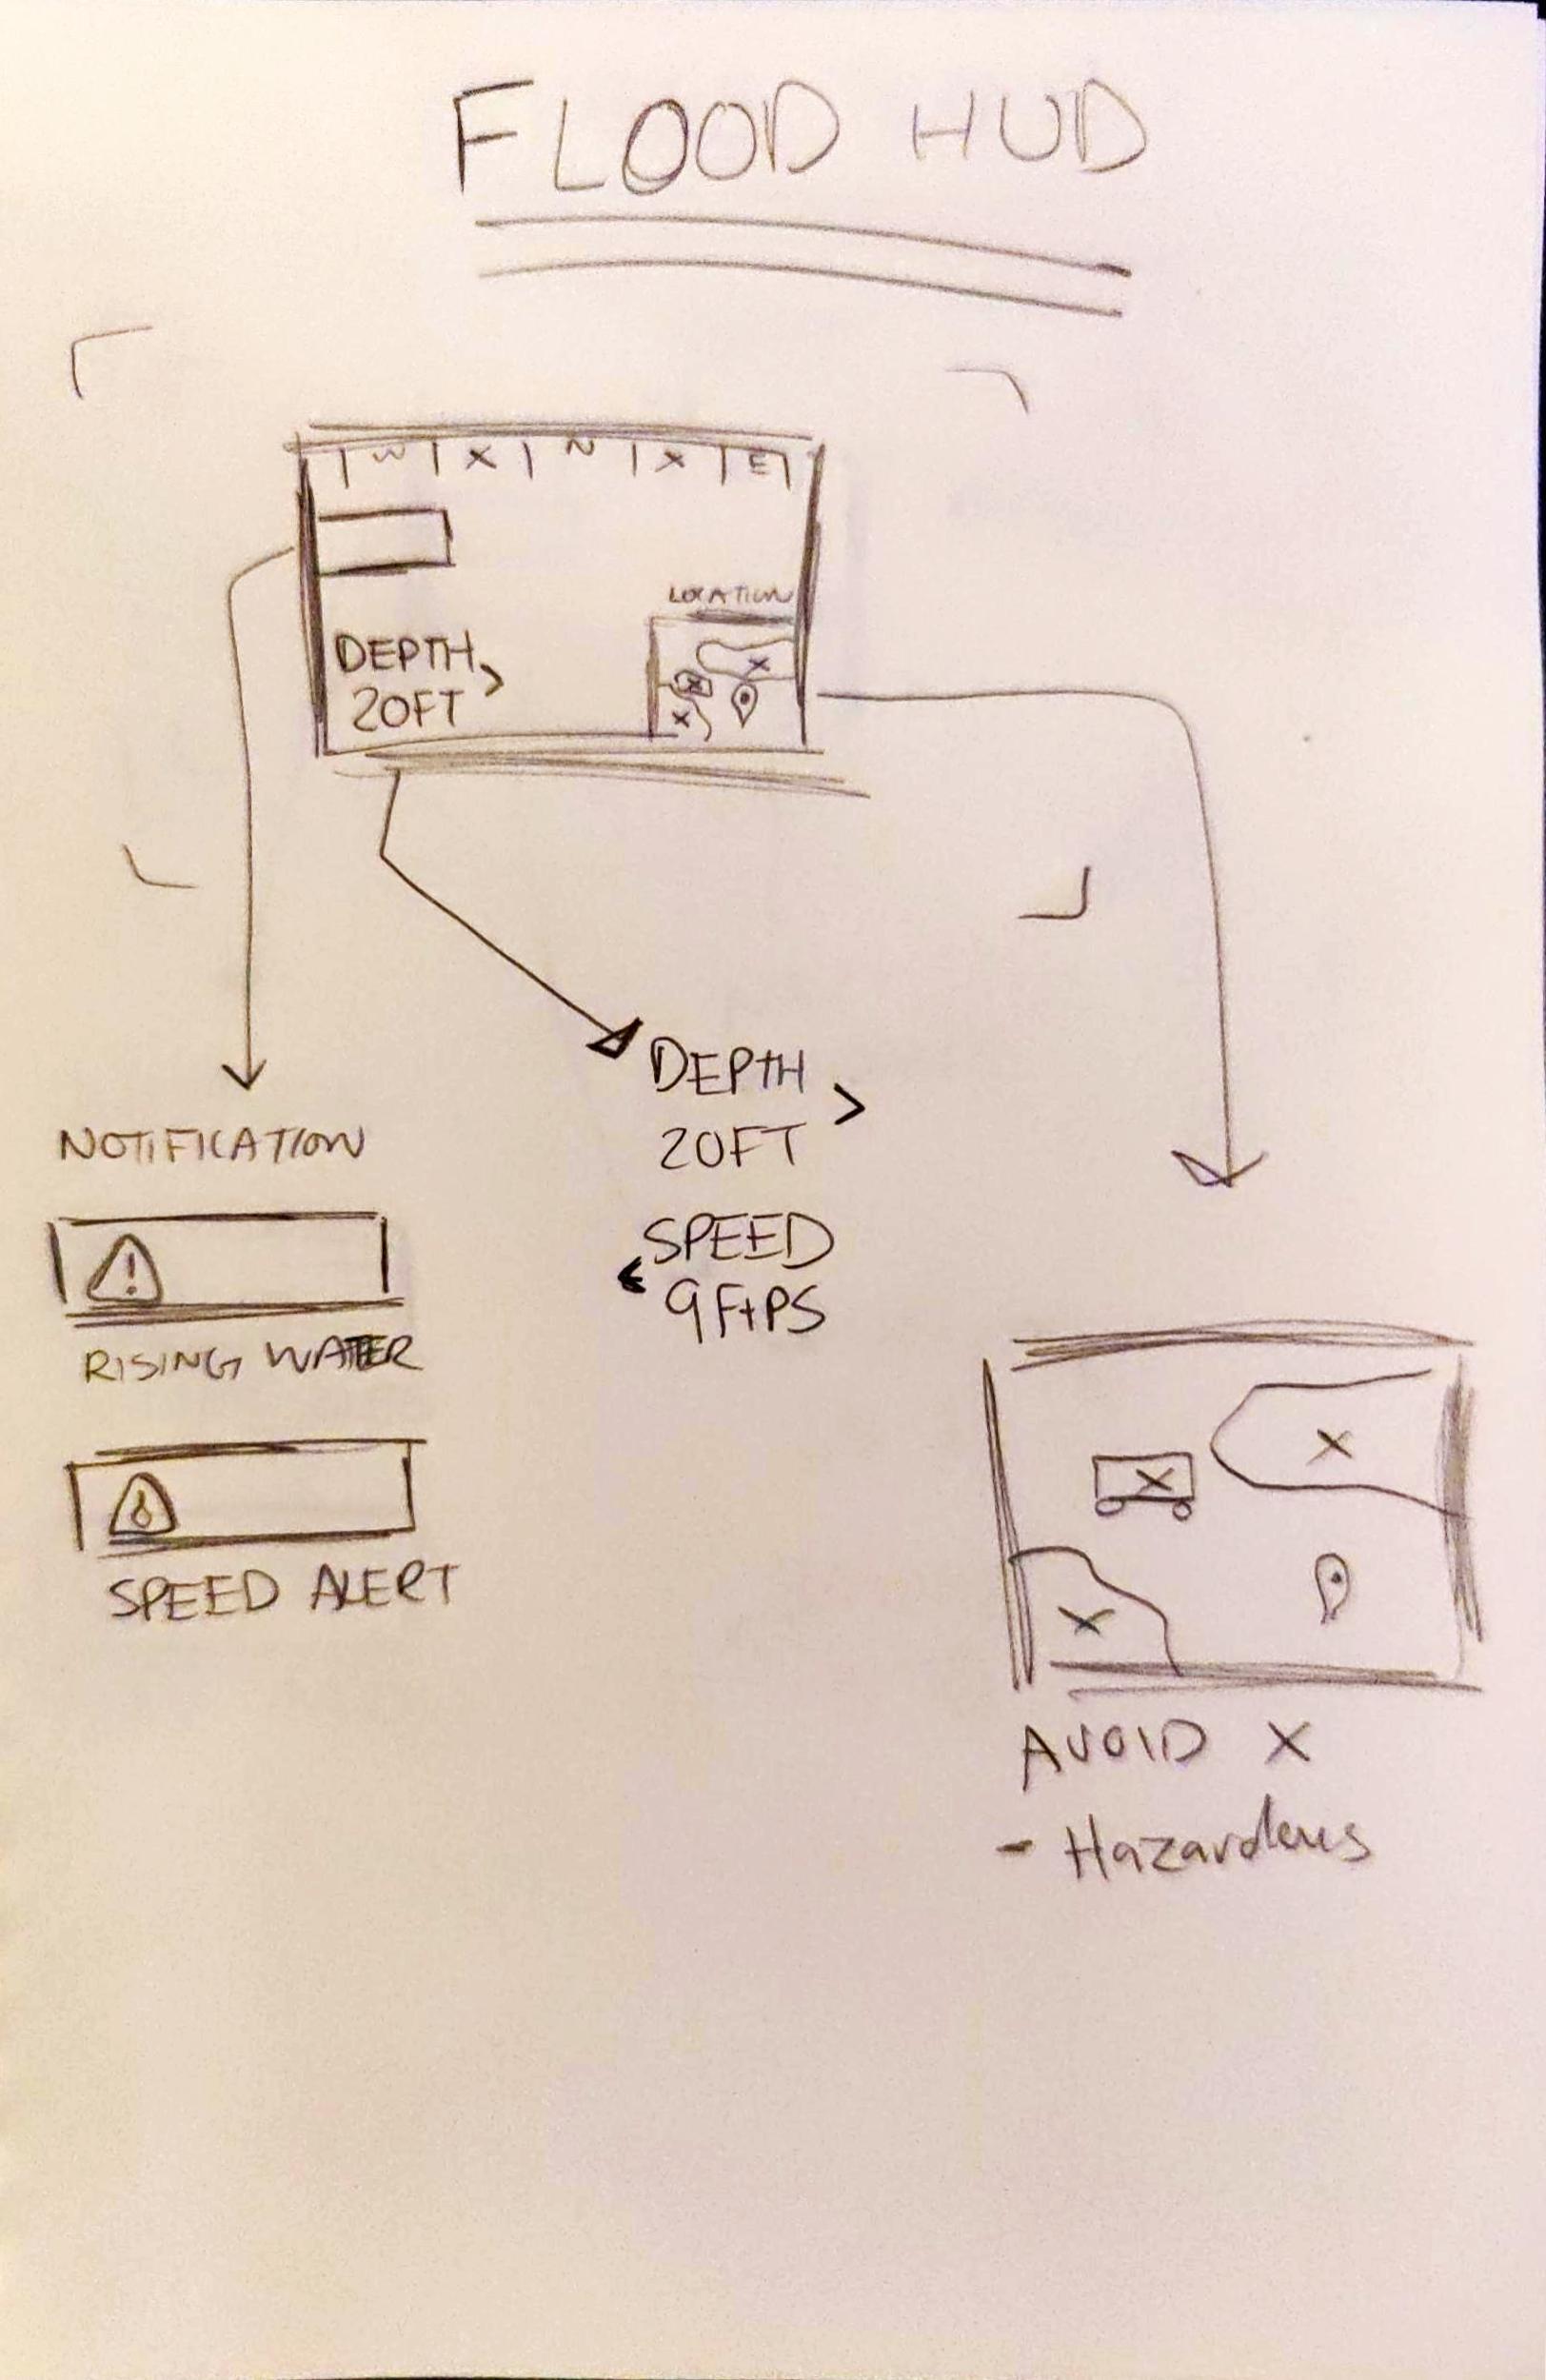 FLOOD HUD
W X N X E
LOCATION
DEPTH >
20FT
X
X
X
DEPTH >
20FT
NOTIFICATION
!
RISING WATER
SPEED
< 9FtPS
SPEED ALERT
X
X
X
AVOID X
- Hazardous